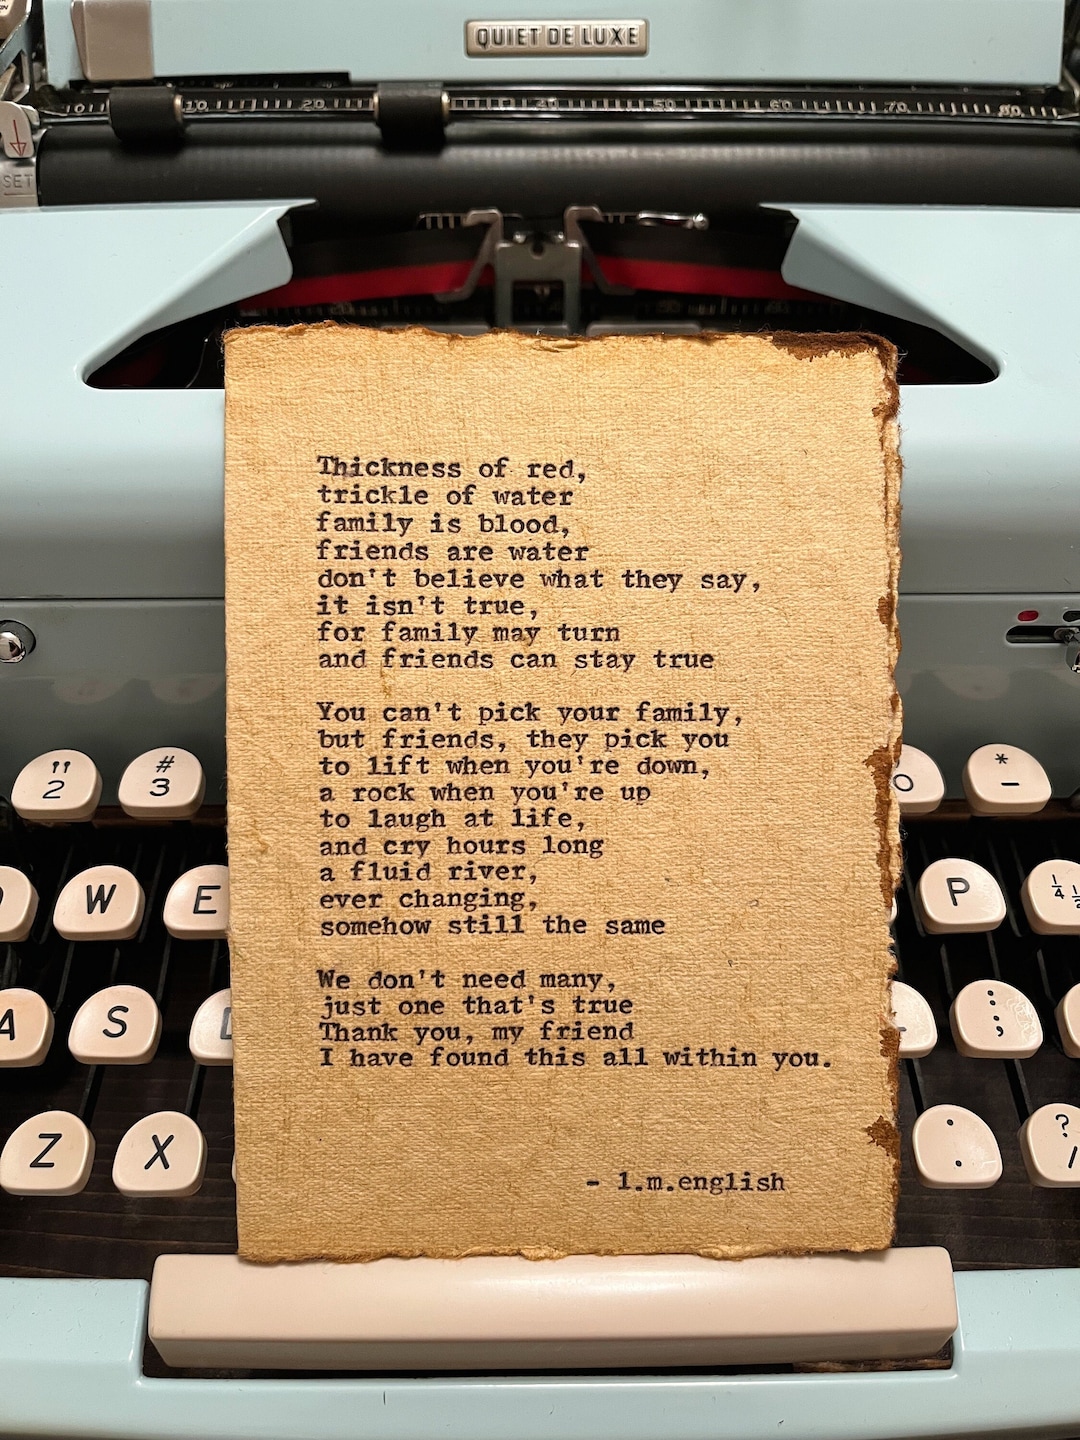 QUIET DE LUXE
10 20 40 50 60 70 80
SET
Thickness of red,
trickle of water
family is blood,
friends are water
don't believe what they say,
it isn't true,
for family may turn
and friends can stay true
You can't pick your family,
but friends, they pick you
to lift when you're down,
a rock when you're up
to laugh at life,
and cry hours long
a fluid river,
ever changing,
somehow still the same
We don't need many,
just one that's true
Thank you, my friend
I have found this all within you.
- l.m.english
" #
2 3
* -
W E P ¼
A S ; ,
Z X : . ? /